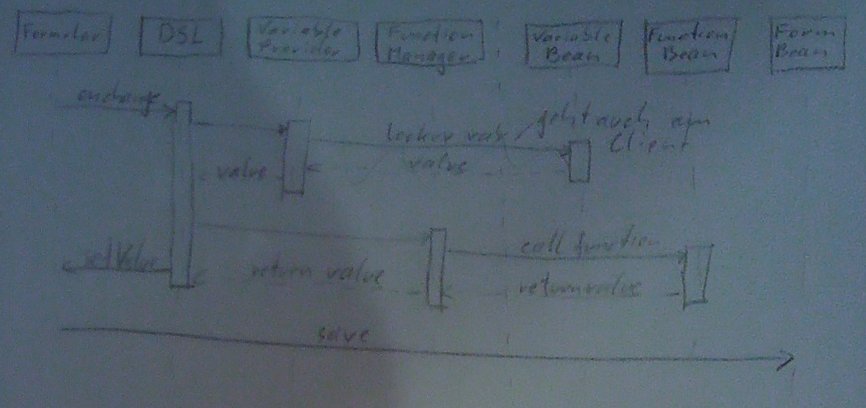 Formular
DSL
Variable
Provider
Function
Manager
Variable
Bean
Function
Bean
Form
Bean
onchange
geht auch am
Client
value
value
call function
setValue
return value
return value
save